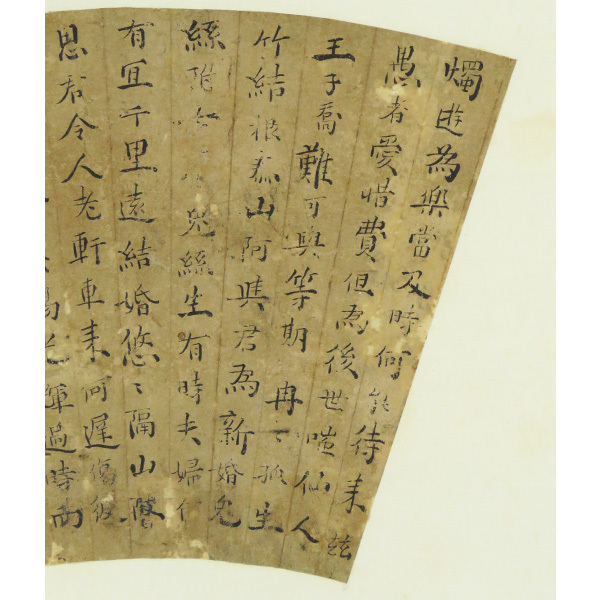 燭遊為樂當及時何能待来兹
愚者愛惜費但為後世嗤仙人
王子喬難可與等期冉〻孤生
竹結根泰山阿與君為新婚兔
絲附兔絲生有時夫婦
有宜千里遠結婚悠〻隔山
思君令人老軒車来何遲傷彼
揚光輝過時而